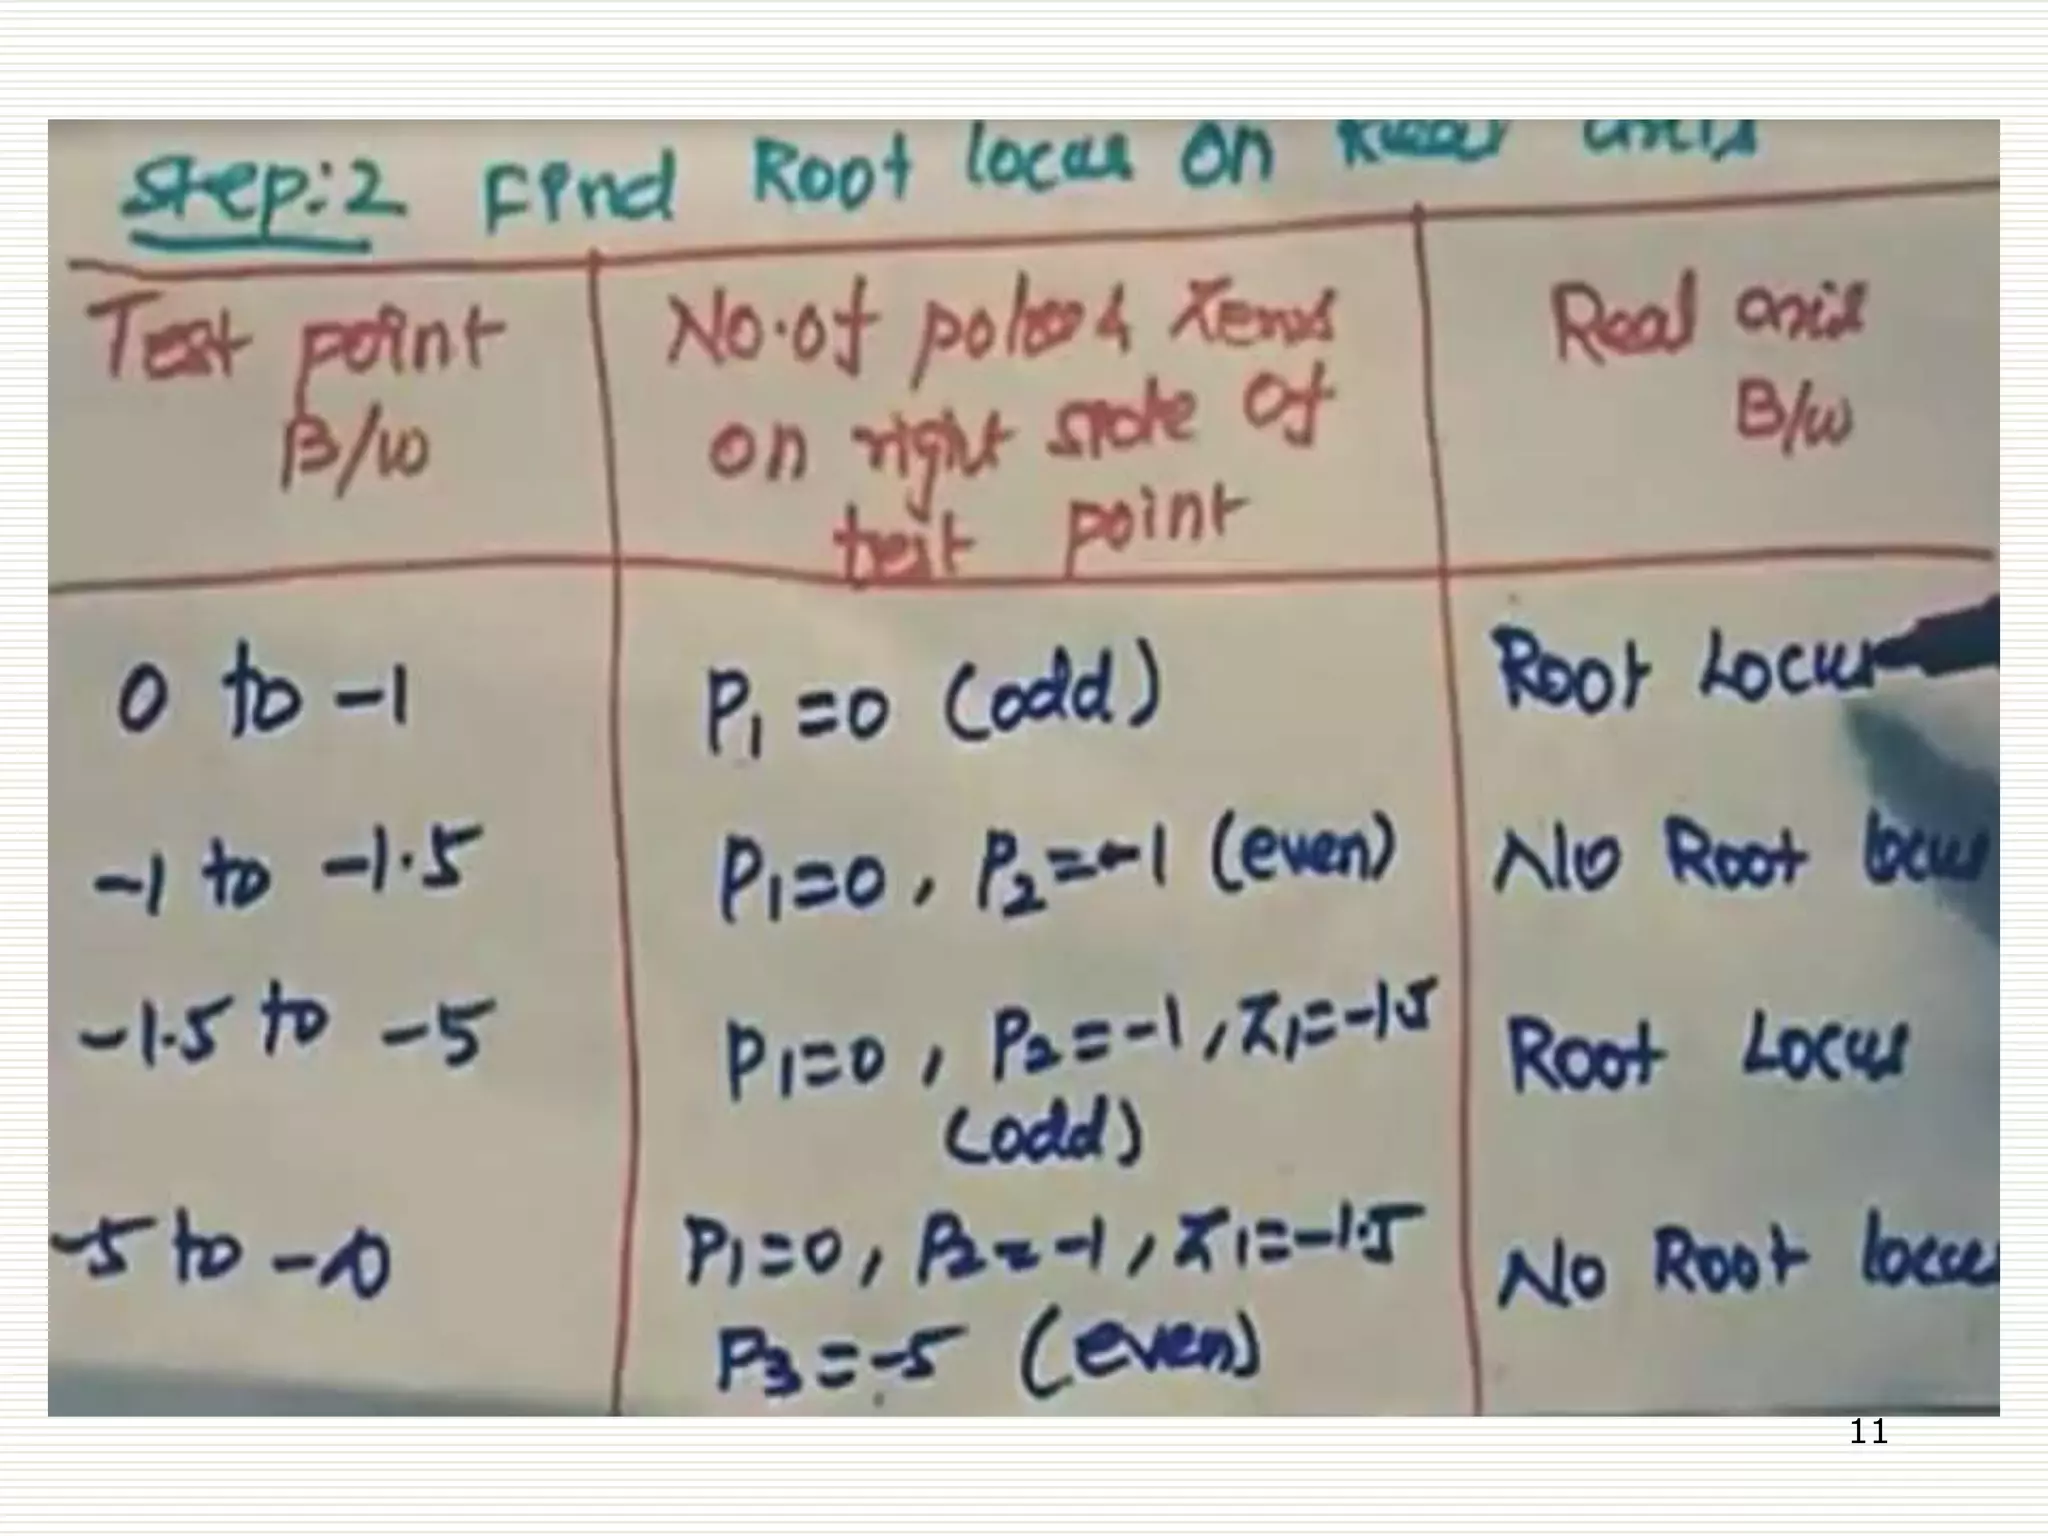 Step:2 Find Root locus on Real axis
Test point
B/w
No. of poles & zeros
on right side of
test point
Real axis
B/w
0 to -1
P₁ =0 (odd)
Root Locus
-1 to -1.5
P₁=0, P₂=-1 (even)
No Root locus
-1.5 to -5
P₁=0, P₂=-1, Z₁=-1.5
(odd)
Root Locus
-5 to -∞
P₁=0, P₂=-1, Z₁=-1.5
P₃=-5 (even)
No Root locus
11